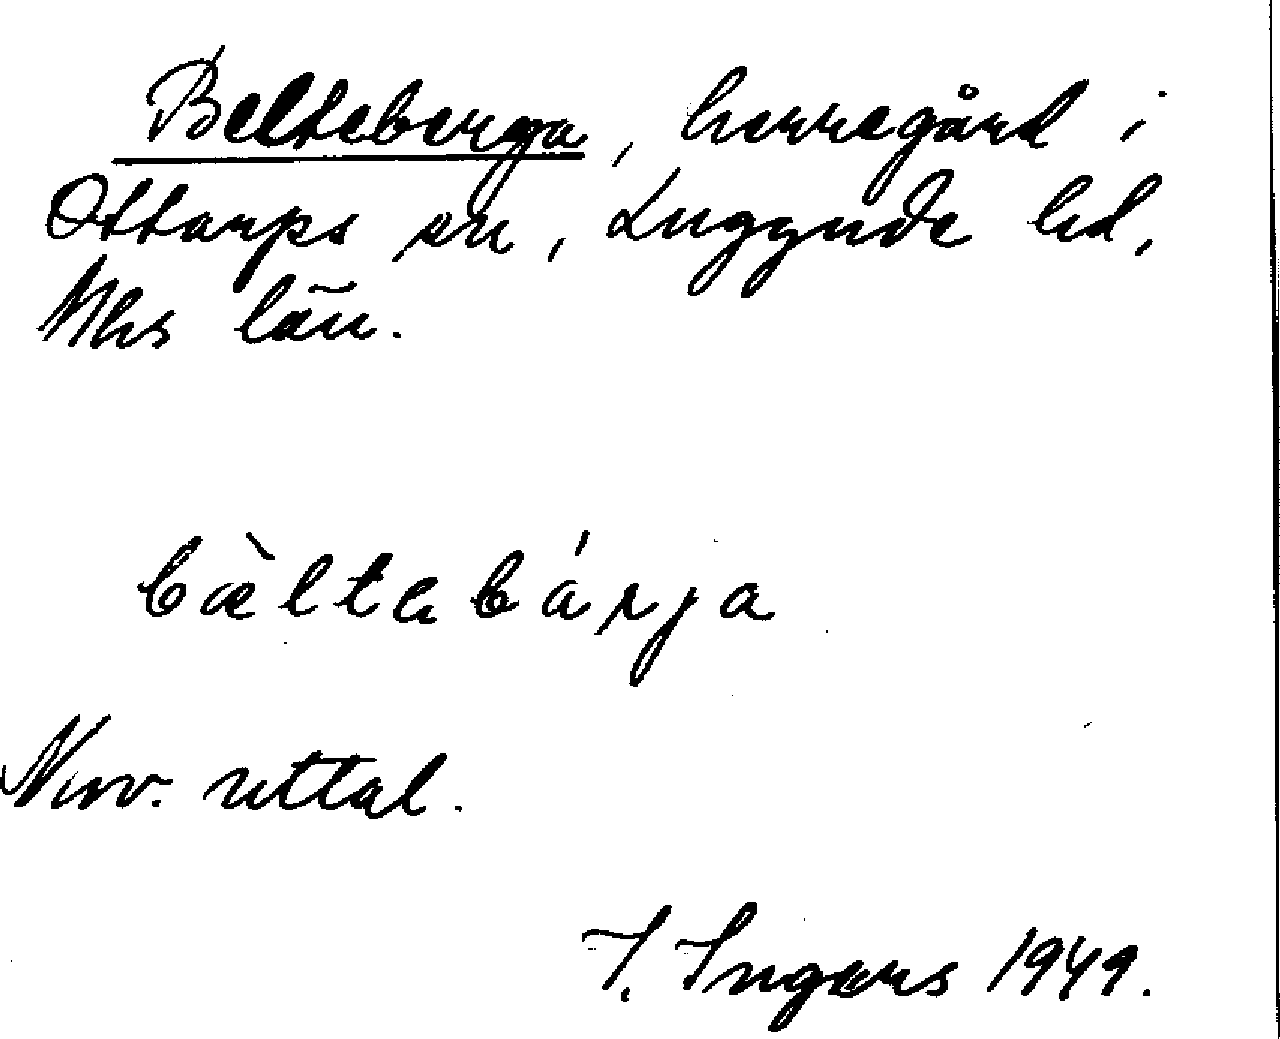 Belteberga, herregård i
Ottarps sn, Luggude hd,
Mhs län.
bæ̀ltebárja
Nuv. uttal.
I. Ingers 1949.